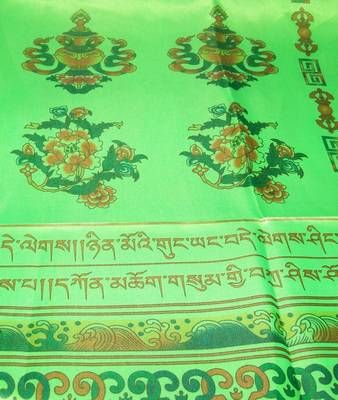 དེ་ལེགས།།ཉིན་མོའི་གུང་ཡང་བདེ་ལེགས་ཤིང
ས་པ།།དཀོན་མཆོག་གསུམ་གྱི་བཀྲ་ཤིས་